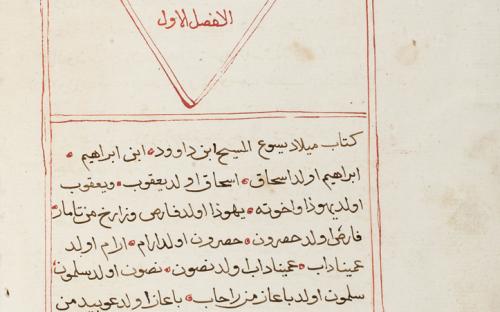 الافصل الاول
كتاب ميلاد يسوع المسيح ابن داوود • ابن ابراهيم •
ابراهيم اولد اسحاق • اسحاق اولد يعقوب • ويعقوب
اولد يهوذا واخوته • يهوذا اولد فارص وزارخ من تامار
فارص اولد حصرون • حصرون اولد ارام • ارام اولد
عميناداب • عميناداب اولد نصون • نصون اولد سلمون
سلمون اولد باعاز من راحاب • باعاز اولد عوبيد من